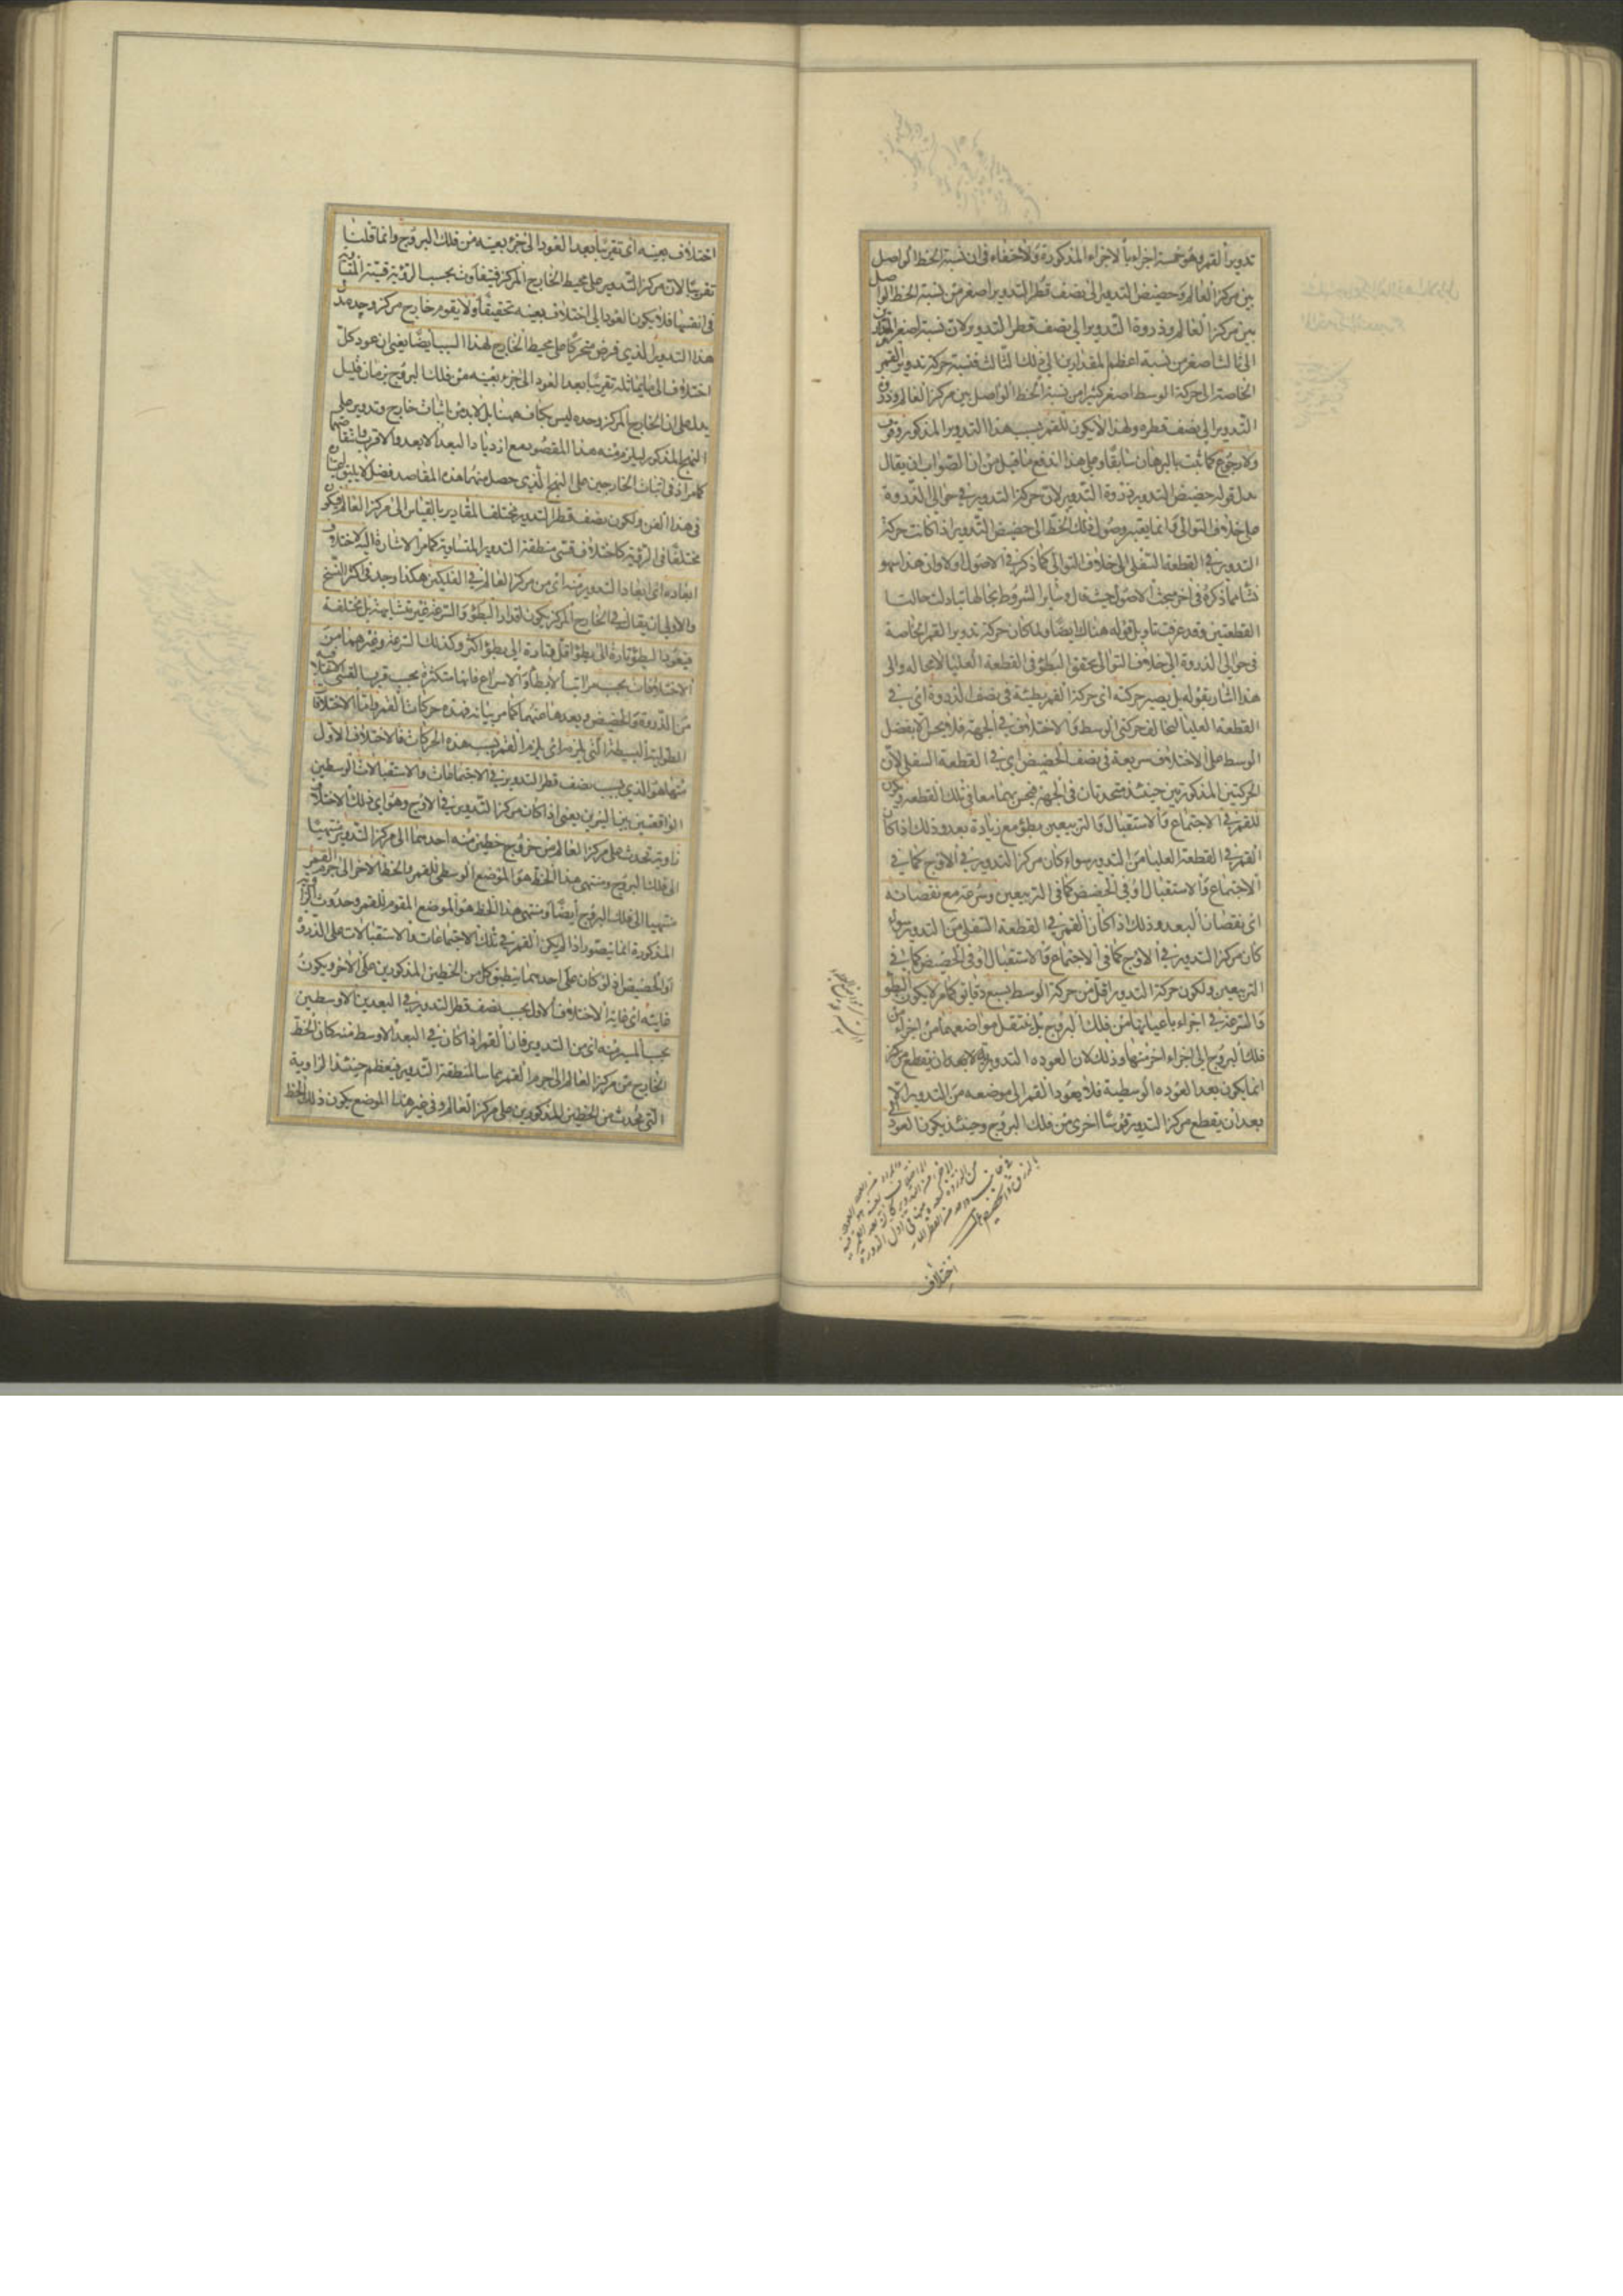 تدوير القمر وهو خمسة اجزاء بالاجزاء المذكورة ولاخفاء فى ان نسبة الخط الواصل
بين مركز العالم وحضيض التدوير الى نصف قطر التدوير اصغر من نسبة الخط الواصل
بين مركز العالم وذروة التدوير الى نصف قطر التدوير لان نسبة اصغر المقدارين
الى ثالث اصغر من نسبة اعظم المقدارين الى ذلك الثالث فنسبة حركة تدوير القمر
الخاصة الى حركة الوسط اصغر كثيرا من نسبة الخط الواصل بين مركز العالم وذروة
التدوير الى نصف قطره ولهذا لا يكون للقمر بسبب هذا التدوير المذكور وقوف
ولا رجوع كما ثبت بالبرهان سابقا وعلى هذا اندفع ما قيل من ان الصواب ان يقال
بدل قوله حضيض التدوير ذروة التدوير لان مركز التدوير فى حوالى الذروة
على خلاف التوالى وانما يعتبر وصول ذلك الخط الى حضيض التدوير اذا كانت حركة
التدوير فى القطعة السفلى الى خلاف التوالى كما ذكر فى الاصول اولا وان هذا سهو
نشأ مما ذكره فى اخر مبحث الاصول حيث قال وساير الشروط بحالها تبادلت حالتا
القطعتين وقد عرفت تاويل قوله هناك ايضا ولما كان حركة تدوير القمر الخاصة
فى حوالى الذروة الى خلاف التوالى يتحقق البطؤ فى القطعة العليا لا محالة والى
هذا اشار بقوله بل يصير حركته اى حركة القمر بطيئة فى نصف الذروة اى فى
القطعة العليا لتخالف حركتى الوسط والاختلاف فى الجهة فلا يحس الا بفضل
الوسط على الاختلاف سريعة فى نصف الحضيض اى فى القطعة السفلى لان
الحركتين المذكورتين حينئذ متحدتان فى الجهة فيحس بهما معا فى تلك القطعة ويكون
للقمر فى الاجتماع والاستقبال والتربيعين بطؤ مع زيادة بعد وذلك اذا كان
القمر فى القطعة العليا من التدوير سواء كان مركز التدوير فى الاوج كما فى
الاجتماع والاستقبال او فى الحضيض كما فى التربيعين وسرعة مع نقصانه
اى نقصان البعد وذلك اذا كان القمر فى القطعة السفلى من التدوير سواء
كان مركز التدوير فى الاوج كما فى الاجتماع والاستقبال او فى الحضيض كما فى
التربيعين ولكون حركة التدوير اقل من حركة الوسط بسبع دقايق كما مر لا يكون البطؤ
والسرعة فى اجزاء باعيانها من فلك البروج بل ينتقل مواضعهما من اجزاء من
فلك البروج الى اجزاء اخر منها وذلك لان العوده التدويرية لا بعد ان يقطع مركز
انما يكون بعد العوده الوسطية فلا يعود القمر الى موضعه من التدوير الا
بعد ان يقطع مركز التدوير قوسا اخرى من فلك البروج وحينئذ يكون العود الى
اختلاف
اختلاف بعينه اى تقريبا بعد العود الى جزء بعينه من فلك البروج وانما قلنا
تقريبا لان مركز التدوير على محيط الخارج المركز فيتفاوت بحسب الرؤية قسيه المتساوية
فى انفسها فلا يكون العود الى اختلاف بعينه تحقيقا ولا يقوم خارج مركز وحده مقام
هذا التدوير الذى فرض متحركا على محيط الخارج لهذا السبب ايضا يعنى ان عود كل
اختلاف الى ما يماثله تقريبا بعد العود الى جزء بعينه من فلك البروج بزمان قليل
يدل على ان الخارج المركز وحده ليس بكاف ههنا بل لا بد من اثبات خارج وتدوير على
النهج المذكور ليلزم منه هذا المقصود مع ازدياد البعد الابعد والاقرب وانتقاصهما
كما مر اذ فى اثبات الخارجين على النهج الذى حصل منهما هذه المقاصد فضل لا يليق اثباته
فى هذا الفن ولكون نصف قطر التدوير مختلف المقادير بالقياس الى مركز العالم فيكون
مختلفا فى الرؤية كاختلاف قسى منطقة التدوير المتساوية كما مر الاشارة اليه لاختلاف
ابعاده اى ابعاد التدوير منه اى من مركز العالم فى الفلكين هكذا وجد فى اكثر النسخ
والاولى ان يقال فى الخارج المركز يكون اقدار البطؤ والسرعة غير متشابهة بل مختلفة
فيعود البطؤ تارة الى بطؤ اقل وتارة الى بطؤ اكثر وكذلك السرعة وغيرهما من
الاختلافات بحسب مراتب الابطاء والاسراع فانها متكثرة بحسب قرب القسى
من الذروة والحضيض وبعدها عنهما كما مر بيانه فهذه حركات القمر واما الاختلافات
الطولية البسيطة التى يلزمه اى يلزم القمر بسبب هذه الحركات فالاختلاف الاول
منها هو الذى بحسب نصف قطر التدوير فى الاجتماعات والاستقبالات الوسطين
الواقعتين بين النيرين يعنى اذا كان مركز التدوير فى الاوج وهو اى ذلك الاختلاف
زاوية تحدث على مركز العالم من خروج خطين منه احدهما الى مركز التدوير منتهيا
الى فلك البروج ومنتهى هذا الخط هو الموضع الوسطى للقمر والخط الاخر الى جرم القمر
منتهيا الى فلك البروج ايضا ومنتهى هذا الخط هو الموضع المقوم للقمر وحدوث الزاوية
المذكورة انما يتصور اذا لم يكن القمر فى تلك الاجتماعات والاستقبالات على الذروة
او الحضيض اذ لو كان على احدهما ينطبق كل من الخطين المذكورين على الاخر ويكون
غايته اى غاية الاختلاف الاول بحسب نصف قطر التدوير فى البعدين الاوسطين
بحسب المسير منه اى من التدوير فان القمر اذا كان فى البعد الاوسط منه كان الخط
الخارج من مركز العالم الى جرم القمر مماسا لمنطقة التدوير فيعظم حينئذ الزاوية
التى يحدث من الخطين المذكورين على مركز العالم وفى غير هذا الموضع يكون ذلك الخط